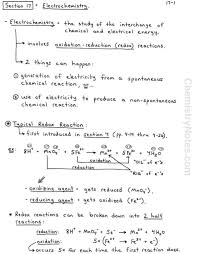 Section 17 - Electrochemistry
17-1
- Electrochemistry → the study of the interchange of
chemical and electrical energy.
→ involves oxidation-reduction (redox) reactions.
→ 2 things can happen:
① generation of electricity from a spontaneous
chemical reaction,
② use of electricity to produce a non-spontaneous
chemical reaction.
Typical Redox Reaction:
→ first introduced in Section 4
8H⁺ + MnO₄⁻ + 5Fe²⁺ → Mn²⁺ + 5Fe³⁺ + 4H₂O
oxidation
reduction
"OIL" of e⁻'s
"RIG" of e⁻'s
- oxidizing agent → gets reduced (MnO₄⁻).
- reducing agent → gets oxidized (Fe²⁺).
Redox reactions can be broken down into 2 half
reactions:
reduction: 8H⁺ + MnO₄⁻ + 5e⁻ → Mn²⁺ + 4H₂O
oxidation: 5 (Fe²⁺ → Fe³⁺ + e⁻)
→ occurs 5x for each time the first reaction does.
ChemistryNotes.com